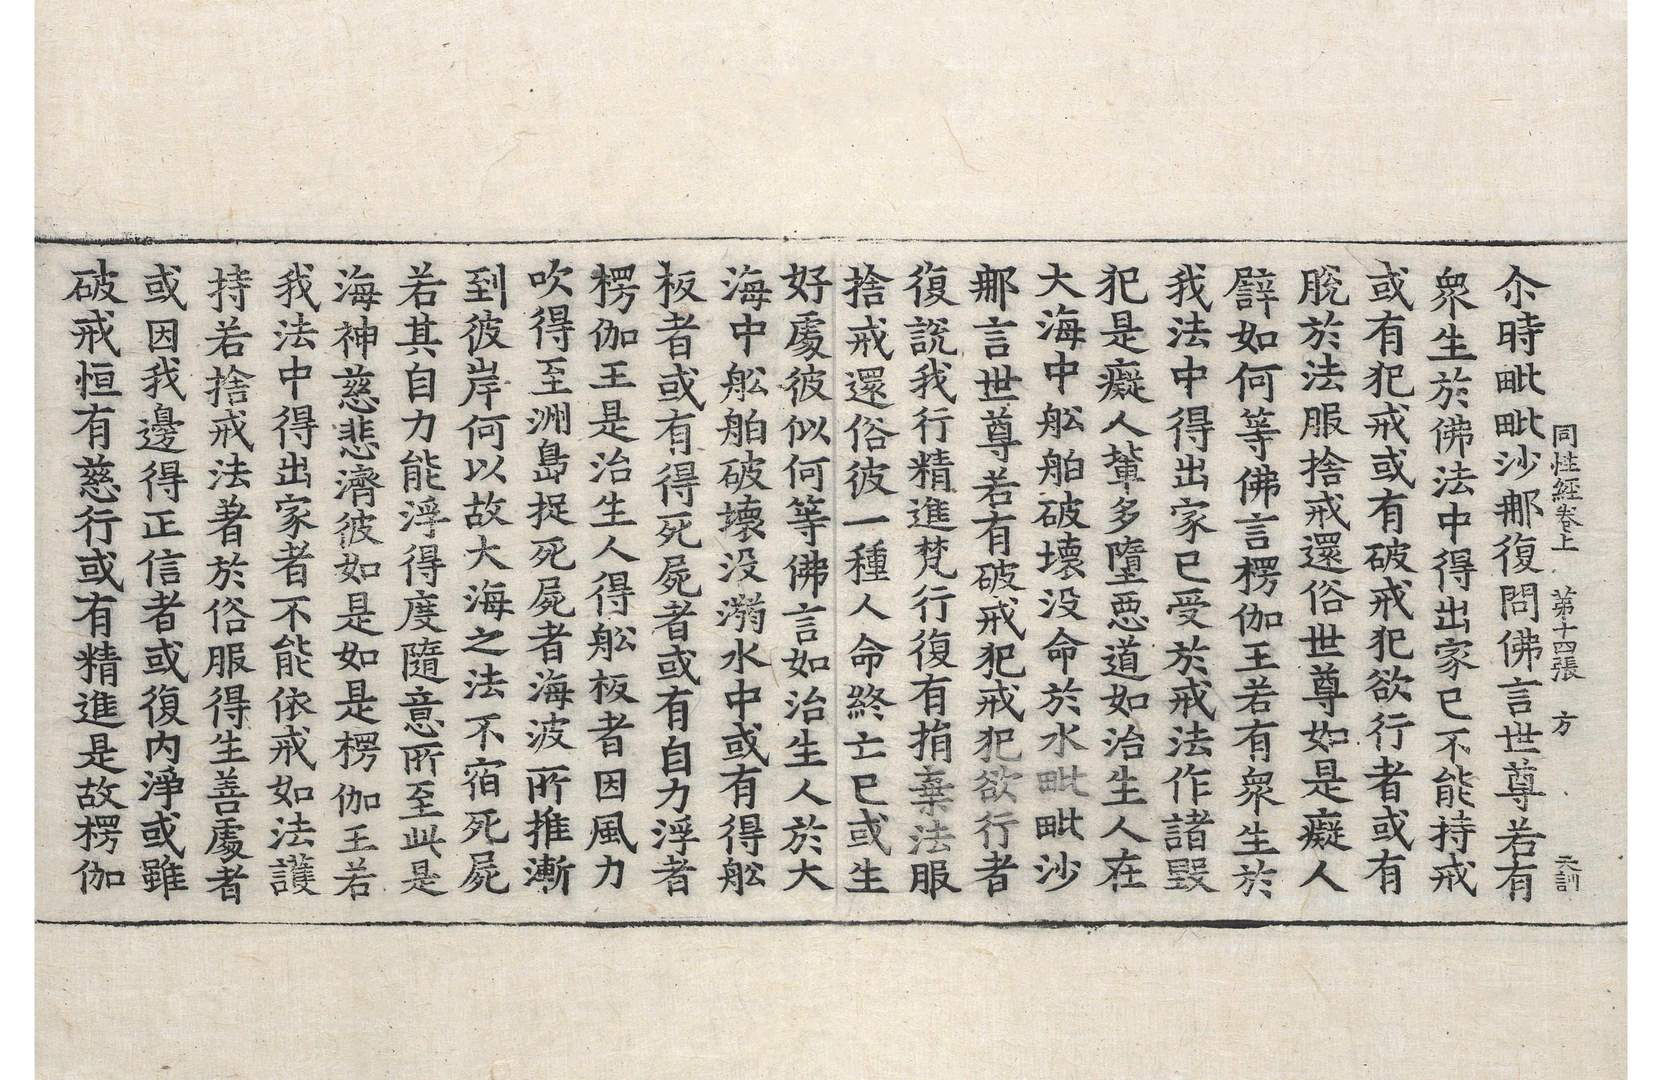 同性經卷上 第十四張 方 天訓
尒時毗毗沙郍復問佛言世尊若有
衆生於佛法中得出家已不能持戒
或有犯戒或有破戒犯欲行者或有
脫於法服捨戒還俗世尊如是癡人
譬如何等佛言楞伽王若有衆生於
我法中得出家已受於戒法作諸毀
犯是癡人輩多墮惡道如治生人在
大海中舩舶破壞没命於水毗毗沙
郍言世尊若有破戒犯戒犯欲行者
復說我行精進梵行復有捐棄法服
捨戒還俗彼一種人命終亡已或生
好處彼似何等佛言如治生人於大
海中舩舶破壞没溺水中或有得舩
板者或有得死屍者或有自力浮者
楞伽王是治生人得舩板者因風力
吹得至洲島捉死屍者海波所推漸
到彼岸何以故大海之法不宿死屍
若其自力能浮得度隨意所至此是
海神慈悲濟彼如是如是楞伽王若
我法中得出家者不能依戒如法護
持若捨戒法著於俗服得生善處者
或因我邊得正信者或復內淨或雖
破戒恒有慈行或有精進是故楞伽